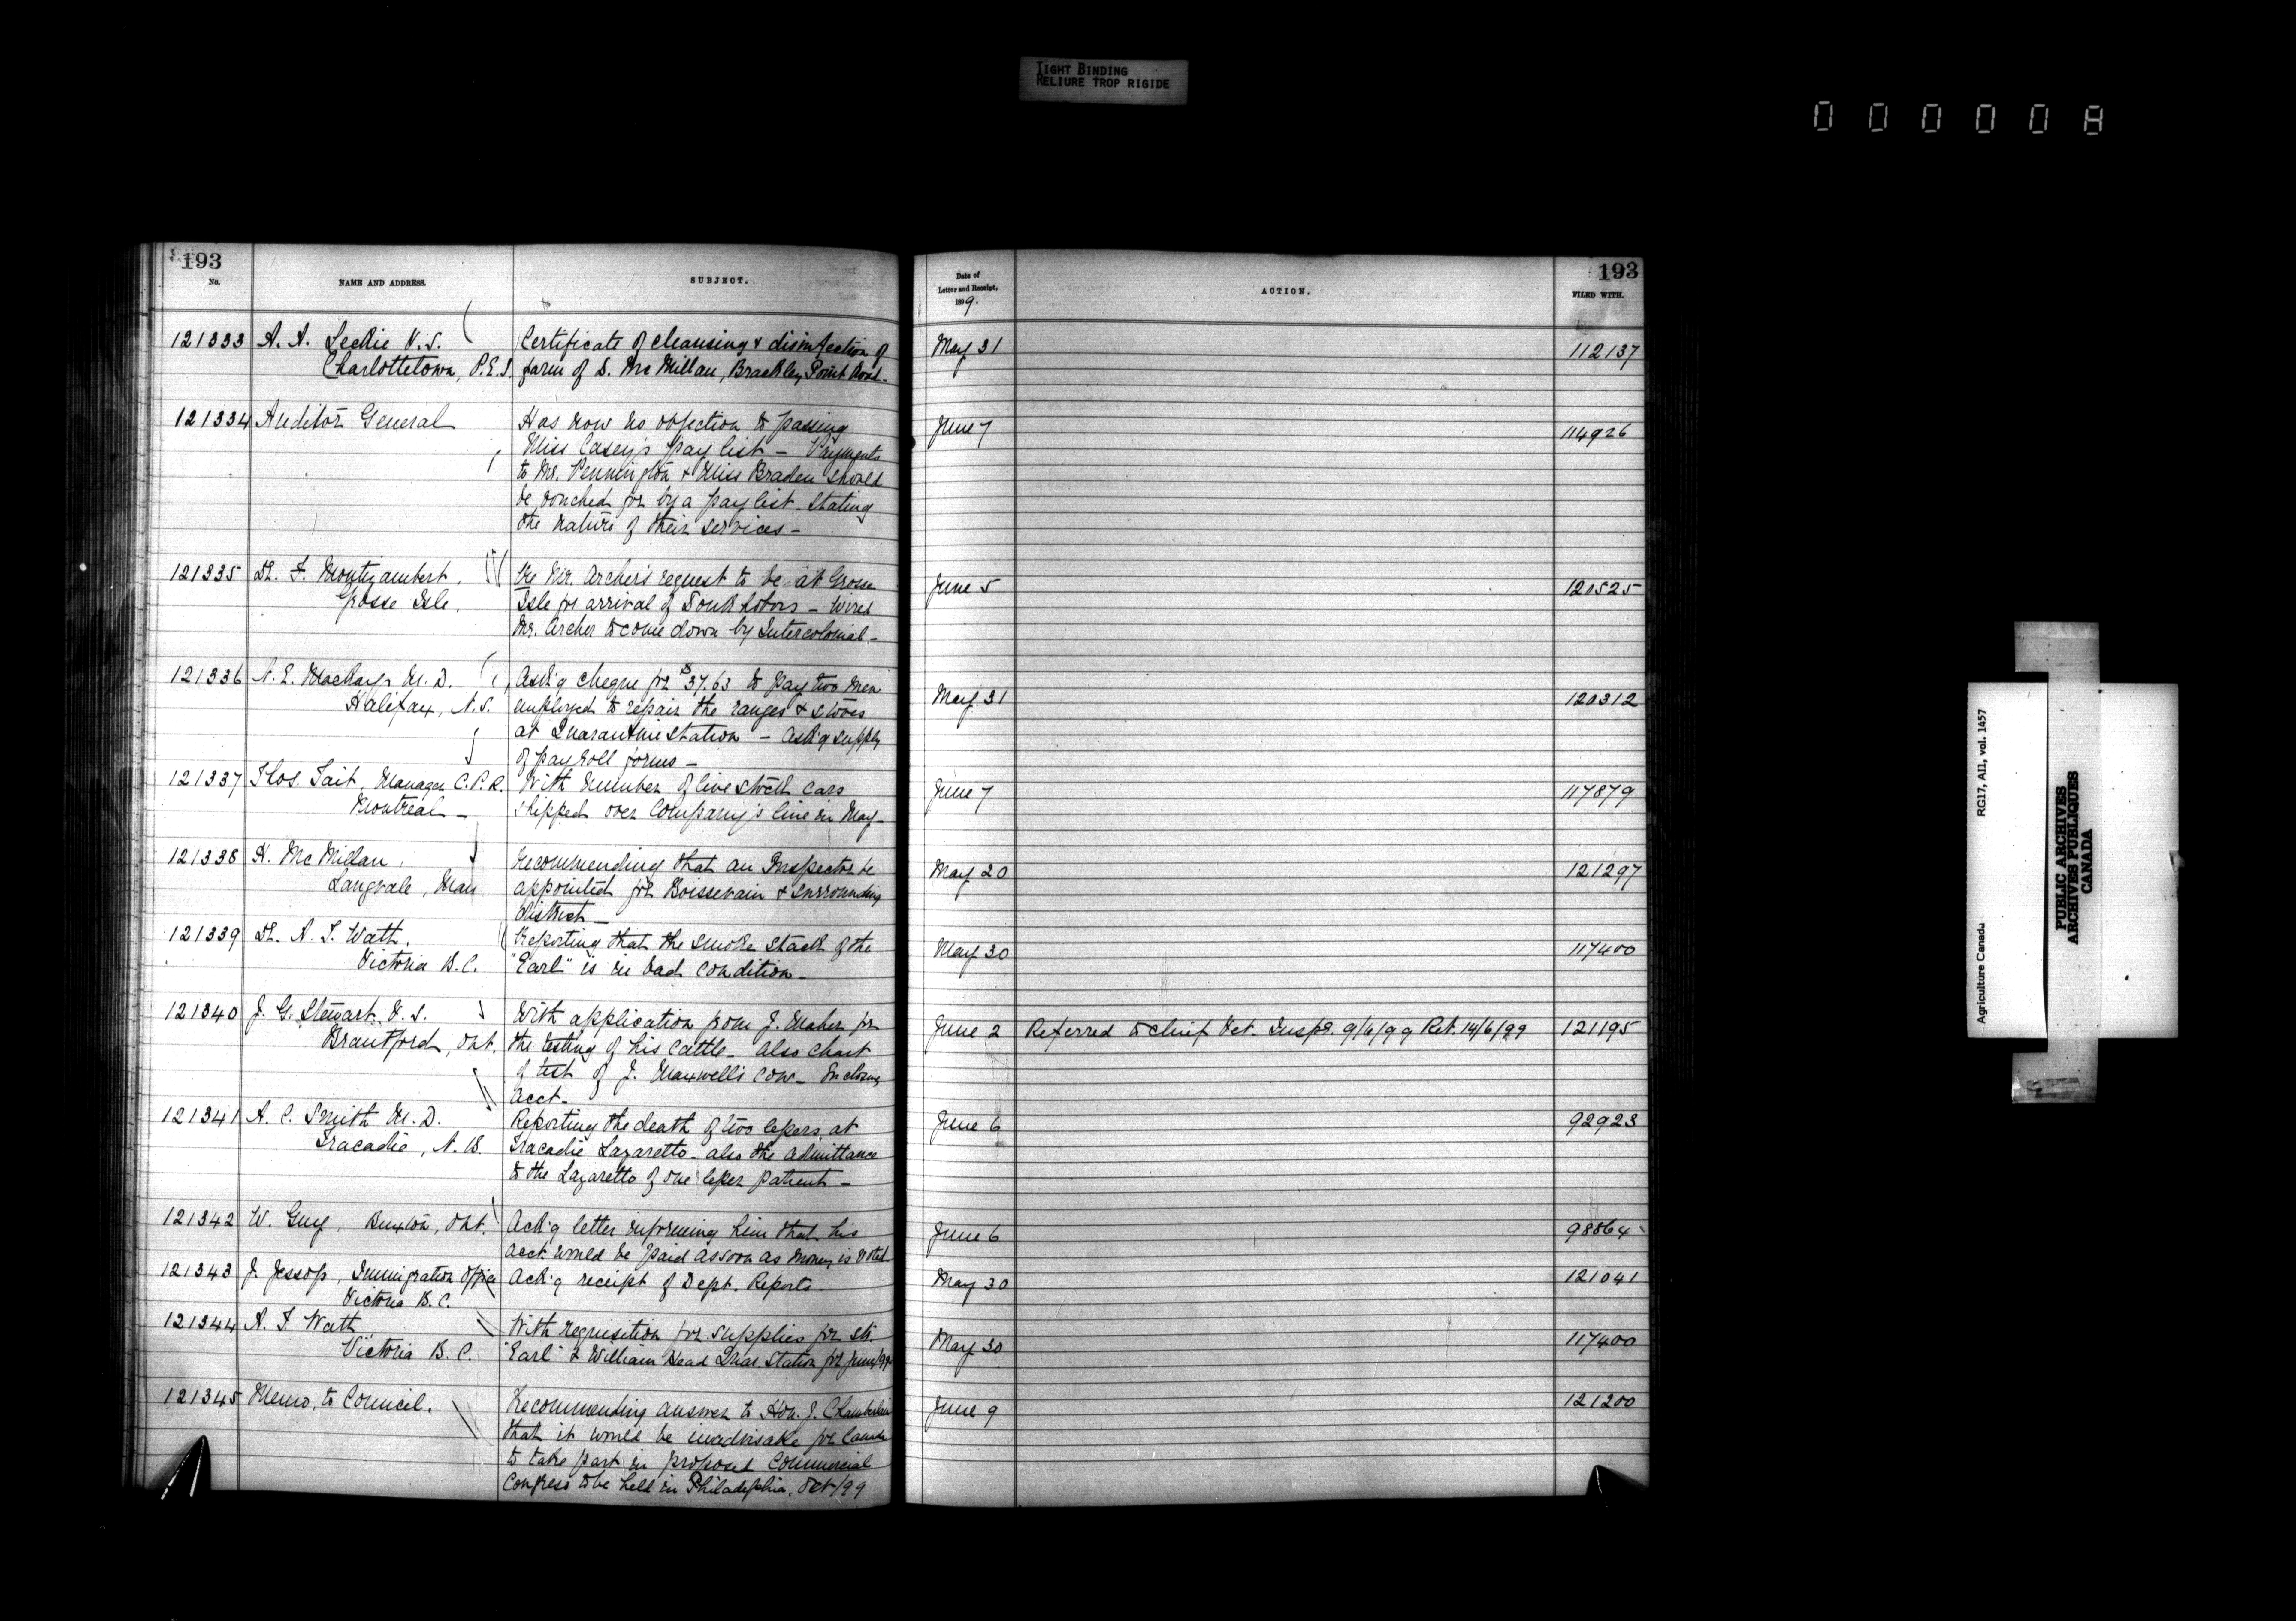 TIGHT BINDING
RELIURE TROP RIGIDE
000008
193
No.
NAME AND ADDRESS.
SUBJECT.
121333 A. A. Leckie V.S.
Charlottetown, P.E.I.
Certificate of cleansing & disinfection of
farm of S. McMillan, Brackley Point Road.
121334 Auditor General
Has now no objection to passing
Miss Casey's pay list – Payments
to Mr. Pennington & Miss Braden should
be vouched for by a pay list stating
the nature of their services –
121335 Dr. F. Montizambert,
Grosse Isle.
Re Mr. Archer's request to be at Grosse
Isle for arrival of Doukhobors – Wired
Mr. Archer to come down by Intercolonial –
121336 N. E. MacKay, M.D.
Halifax, N.S.
Ask'g cheque for $37.63 to pay two men
employed to repair the ranges & stoves
at Quarantine Station – Ask'g supply
of pay roll forms –
121337 Thos. Tait, Manager C.P.R.
Montreal –
With number of live stock cars
shipped over Company's line in May –
121338 H. McMillan,
Langvale, Man
Recommending that an Inspector be
appointed for Boissevain & surrounding
district –
121339 Dr. A. T. Watt,
Victoria B.C.
Reporting that the smoke stack of the
"Earl" is in bad condition –
121340 J. G. Stewart V.S.
Brantford, Ont.
With application from J. Maher for
the testing of his cattle – also chart
of test of J. Maxwell's cow – Enclosing
Acct –
121341 A. C. Smith M.D.
Tracadie, N.B.
Reporting the death of two lepers at
Tracadie Lazaretto – also the admittance
to the Lazaretto of one leper patient –
121342 W. Guy, Buxton, Ont.
Ack'g letter informing him that his
acct would be paid as soon as money is voted
121343 J. Jessop, Immigration Office
Victoria B.C.
Ack'g receipt of Dept. Reports –
121344 A. T. Watt
Victoria B.C.
With requisition for supplies for str.
"Earl" & William Head Quar. Station for June/99
121345 Memo. to Council.
Recommending answer to Hon. J. Chamberlain
that it would be inadvisable for Canada
to take part in proposed Commercial
Congress to be held in Philadelphia, Oct/99
193
Date of
Letter and Receipt,
1899.
ACTION.
FILED WITH.
May 31 112137
June 7 114926
June 5 120525
May 31 120312
June 7 117879
May 20 121297
May 30 117400
June 2 Referred to Chief Vet. Inspr. 9/6/99 Ret. 14/6/99 121195
June 6 92923
June 6 98864
May 30 121041
May 30 117400
June 9 121200
Agriculture Canada RG17, AII, vol. 1457
PUBLIC ARCHIVES
ARCHIVES PUBLIQUES
CANADA